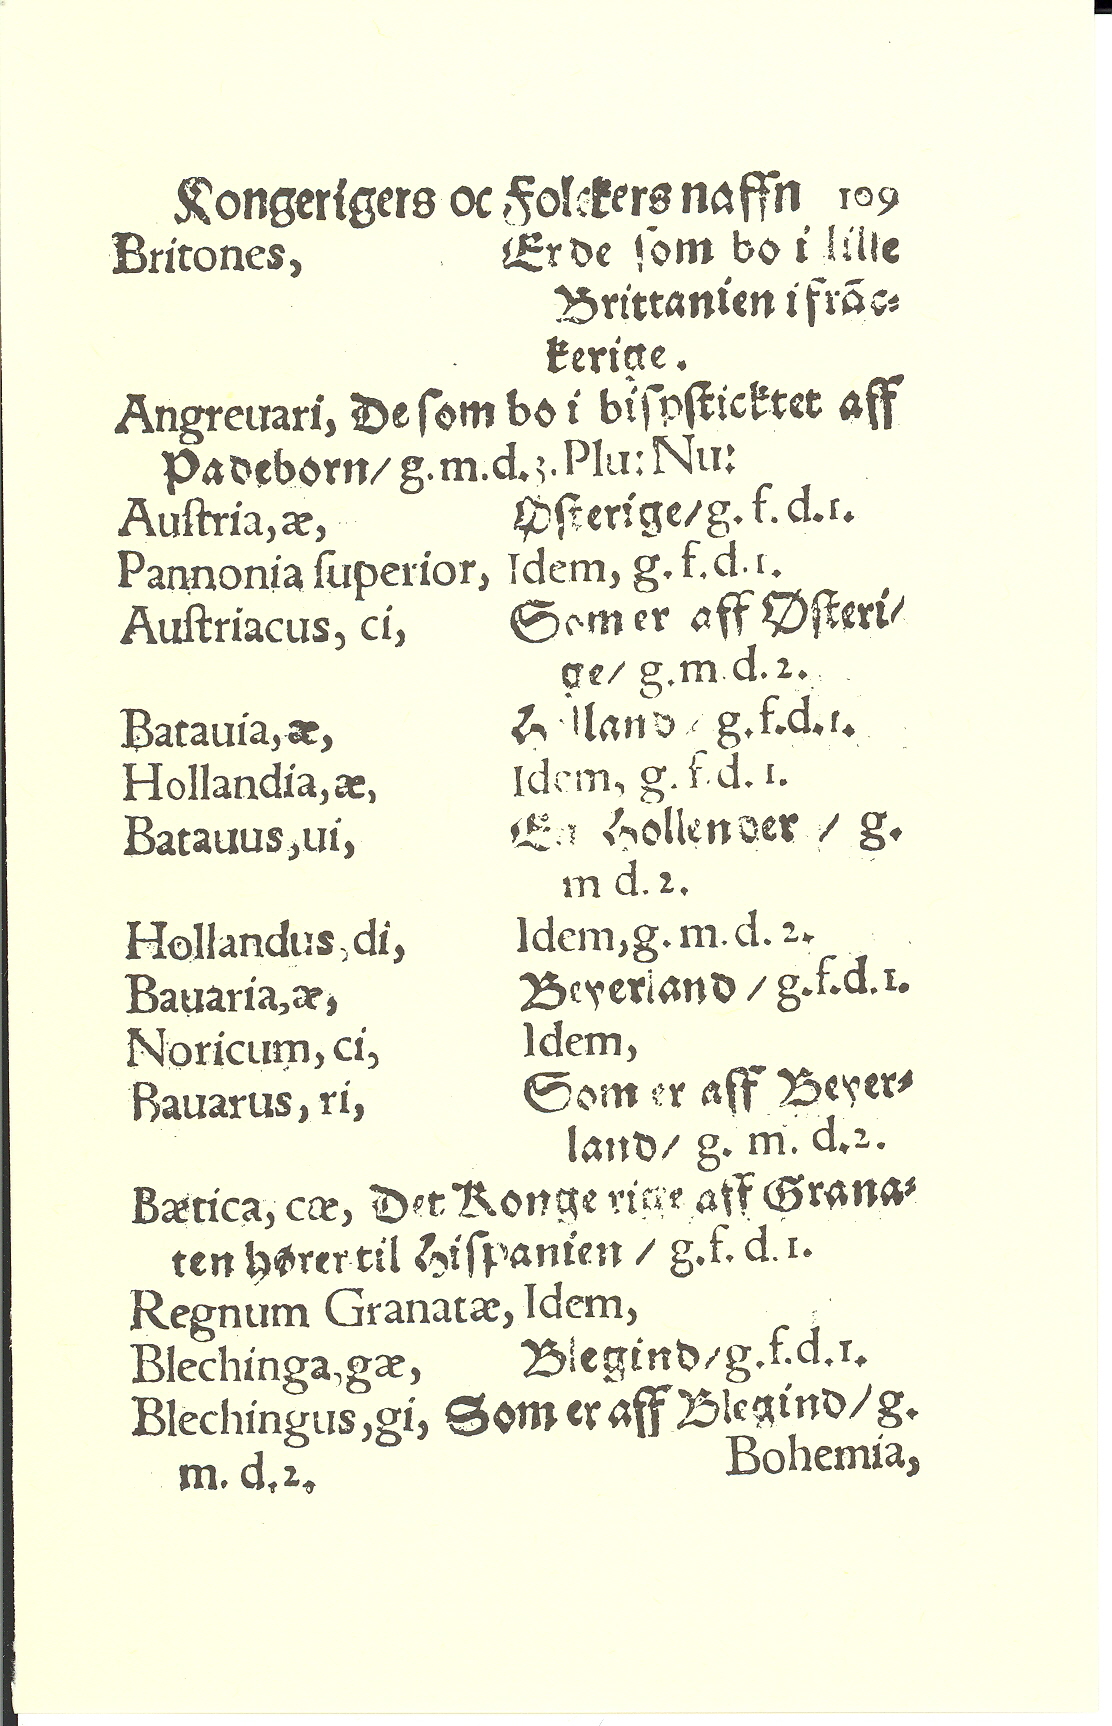 Kongerigers oc Folckers naffn 109
Britones, Er de ſom bo i lille
Brittanien i frāc⸗
kerige.
Angreuari, De ſom bo i biſpſticktet aff
Padeborn/ g.m.d.3. Plu: Nu:
Auſtria, æ, Øſterige/ g. f. d.1.
Pannonia ſuperior, Idem, g. f. d.1.
Auſtriacus, ci, Som er aff Øſteri/
ge/ g.m.d.2.
Batauia, æ, Holland / g. f.d.1.
Hollandia, æ, Idem, g. f.d. 1.
Batauus, ui, En Hollender / g.
m d. 2.
Hollandus, di, Idem, g. m. d. 2.
Bauaria, æ, Beyerland / g.f.d.1.
Noricum, ci, Idem,
Bauarus, ri, Som er aff Beyer⸗
land/ g. m. d.2.
Bætica, cæ, Det Konge rige aff Grana⸗
ten hører til Hiſpanien / g.f. d.1.
Regnum Granatæ, Idem,
Blechinga, gæ, Blegind/ g.f.d.1.
Blechingus, gi, Som er aff Blegind/ g.
m. d.2. Bohemia,